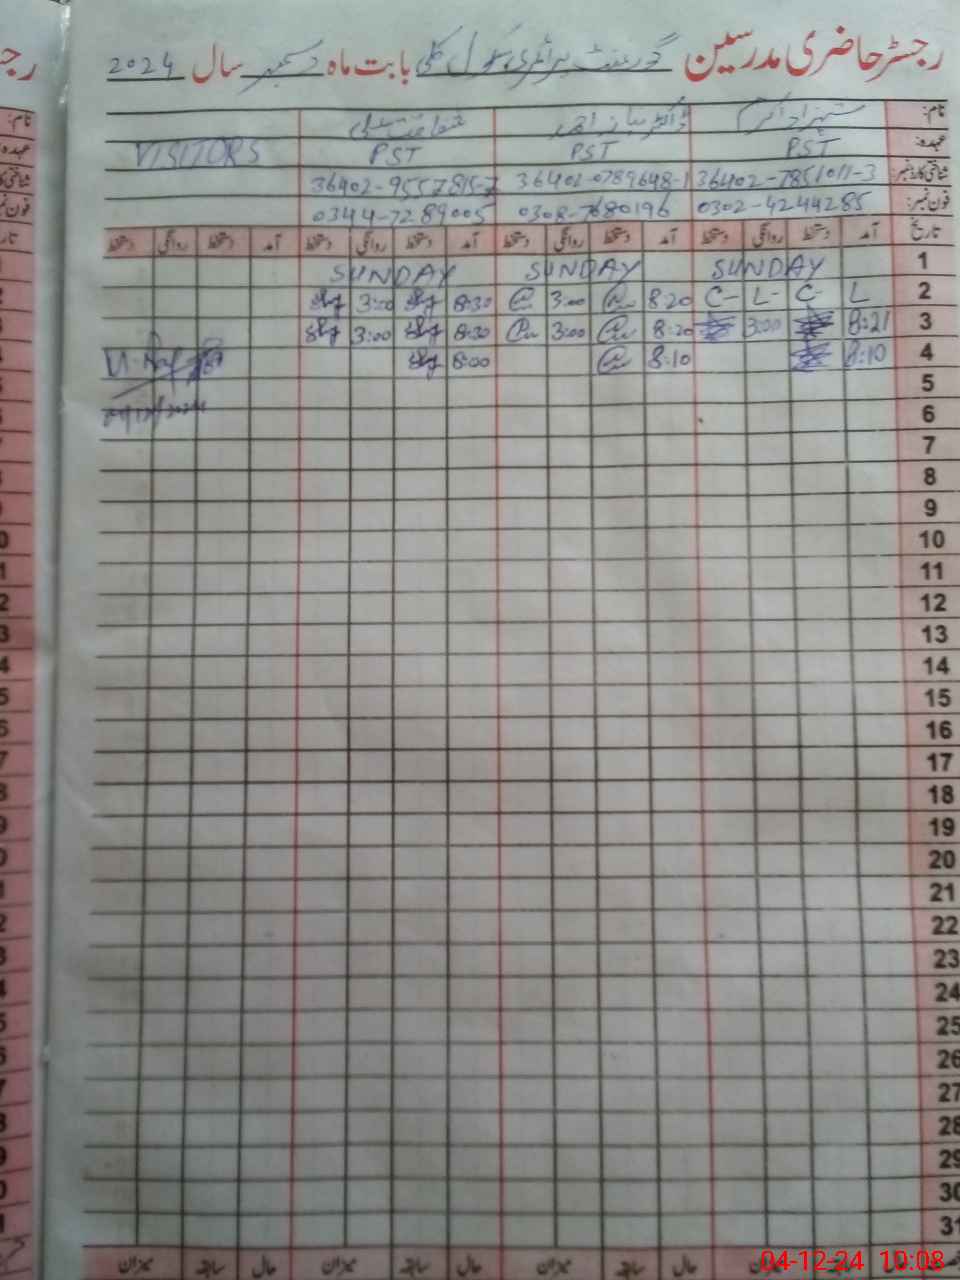 رجسٹر حاضری مدرسین گورنمنٹ پرائمری سکول کلی بابت ماہ دسمبر سال 2024
نام: شہزاد اکرم
عہدہ: PST PST PST VISITORS
شناختی کارڈ نمبر: 36402-7851011-3 36402-0789648-1 36402-9557815-7
فون نمبر: 0302-4244285 0308-7680196 0344-7289005
تاریخ آمد دستخط روانگی دستخط آمد دستخط روانگی دستخط آمد دستخط روانگی دستخط آمد دستخط روانگی دستخط
1 SUNDAY SUNDAY SUNDAY
2 L C- L- C- 8:20 3:00 8:30 3:00
3 8:21 3:00 8:20 3:00 8:30 3:00
4 8:10 8:10 8:00
5
04/12/2024
6
7
8
9
10
11
12
13
14
15
16
17
18
19
20
21
22
23
24
25
26
27
28
29
30
31
حال سابقہ میزان حال سابقہ میزان حال سابقہ میزان
04-12-24 10:08